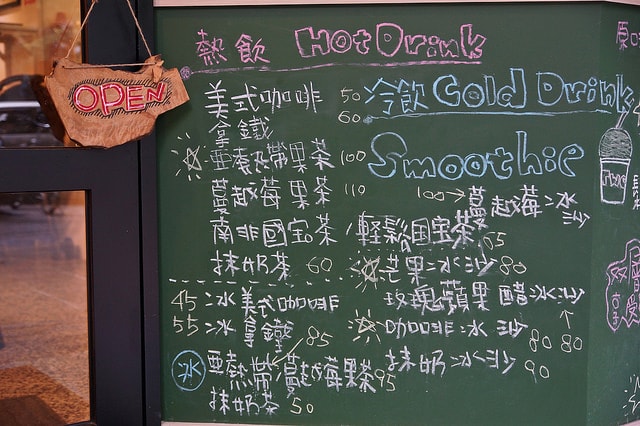 OPEN
熱飲 Hot Drink
美式咖啡 50
拿鐵 60
亞藜熱帶果茶 100
蔓越莓果茶 110
南非國宝茶
抹奶茶 60
45 冰美式咖啡
55 冰拿鐵 85
冰 亞熱帶/蔓越莓果茶 95
抹奶茶 50
冷飲 Cold Drink
Smoothie
100→蔓越莓冰沙
輕鬆国宝茶 65
芒果冰沙 80
玫瑰蘋果醋冰沙 80
咖啡冰沙 80
抹奶冰沙 90